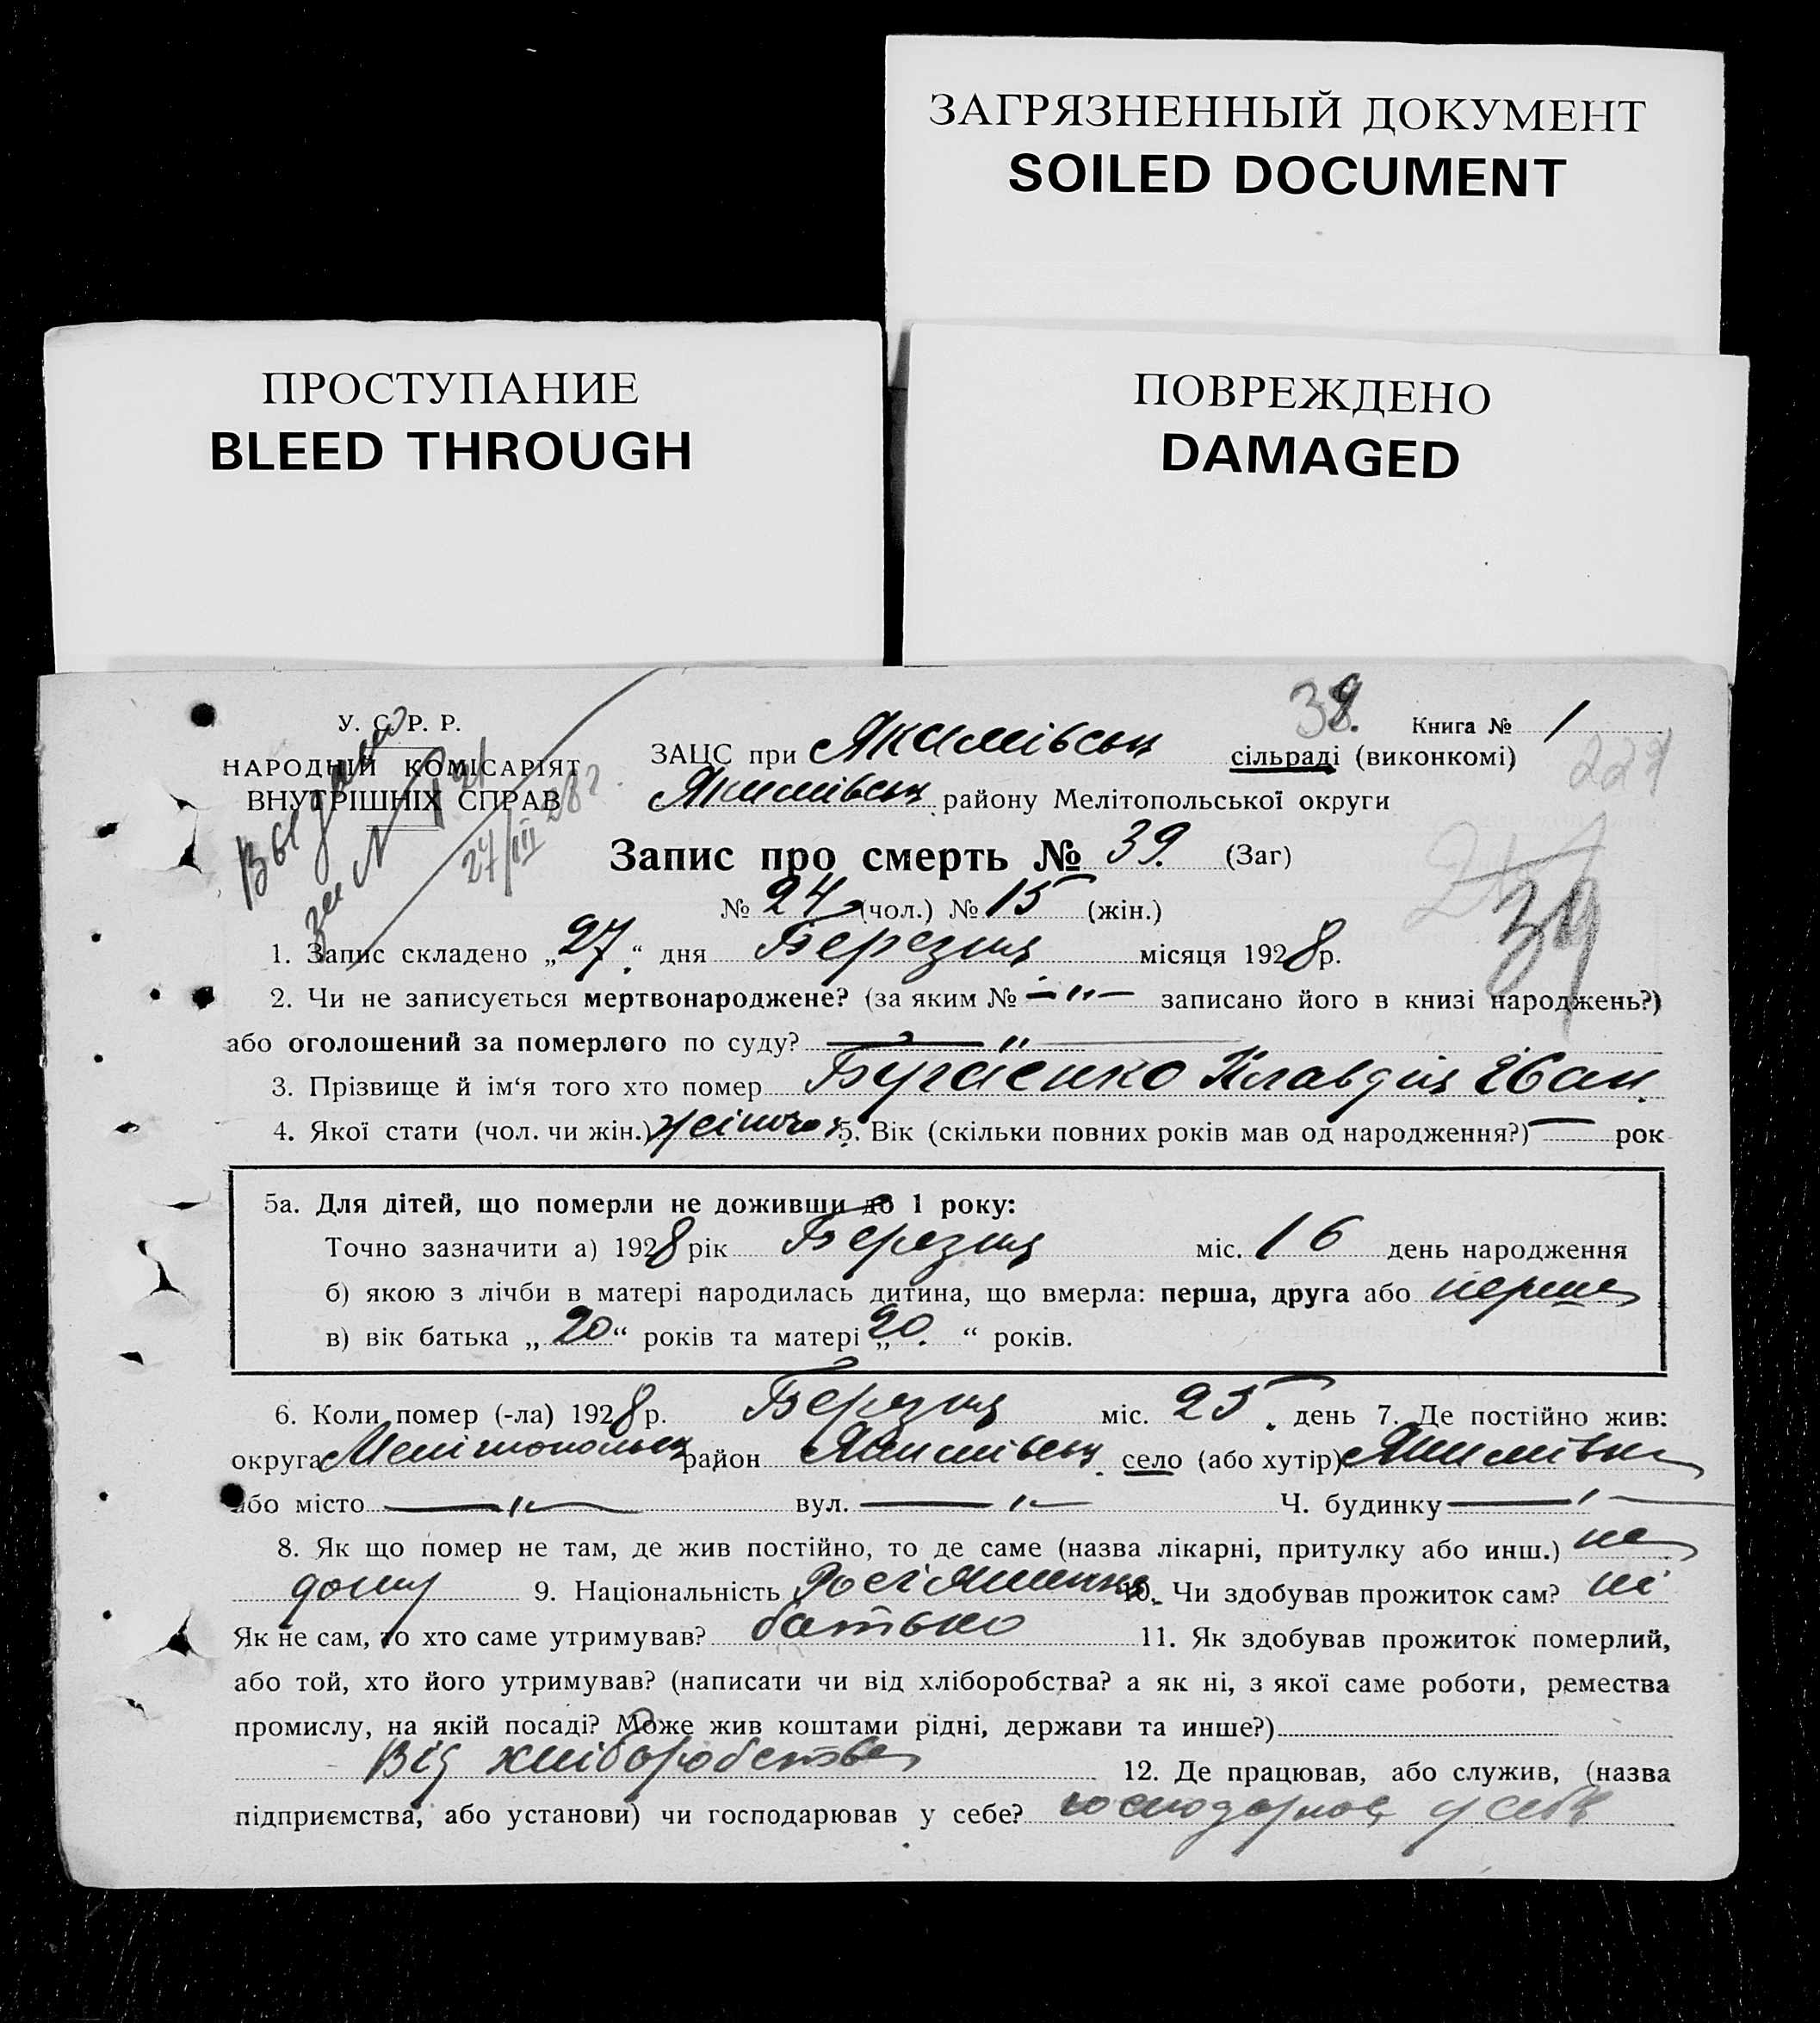 ЗАГРЯЗНЕННЫЙ ДОКУМЕНТ
SOILED DOCUMENT
ПРОСТУПАНИЕ
BLEED THROUGH
ПОВРЕЖДЕНО
DAMAGED
У. С. Р. Р.
НАРОДНІЙ КОМІСАРІЯТ
ВНУТРІШНІХ СПРАВ
27/III 28 г.
Книга № 1
ЗАЦС при Якимівськ сільраді (виконкомі)
227
Якимівськ району Мелітопольської округи
Запис про смерть № 39. (Заг)
39
№ 24 (чол.) № 15 (жін.)
1. Запис складено „27“ дня Березня місяця 1928р.
2. Чи не записується мертвонароджене? (за яким № —„— записано його в книзі народжень?)
або оголошений за померлого по суду? — „ —
3. Прізвище й ім‘я того хто помер Бугаєнко Клавдія Іван.
4. Якої стати (чол. чи жін.) жіноча 5. Вік (скільки повних років мав од народження?) — рок
5а. Для дітей, що померли не доживши до 1 року:
Точно зазначити а) 1928 рік Березня міс. 16 день народження
б) якою з лічби в матері народилась дитина, що вмерла: перша, друга або перша
в) вік батька „20“ років та матері „20.“ років.
6. Коли помер (-ла) 1928 р. Березня міс. 25. день 7. Де постійно жив:
округа Мелітопольськ район Якимівськ село (або хутір) Якимівка
або місто — „ — вул. — „ — Ч. будинку — „ —
8. Як що помер не там, де жив постійно, то де саме (назва лікарні, притулку або инш.) на
дому 9. Національність Росіянка 10. Чи здобував прожиток сам? ні
Як не сам, то хто саме утримував? батько 11. Як здобував прожиток померлий,
або той, хто його утримував? (написати чи від хліборобства? а як ні, з якої саме роботи, ремества
промислу, на якій посаді? Може жив коштами рідні, держави та инше?)
Від хліборобства 12. Де працював, або служив, (назва
підприємства, або установи) чи господарював у себе? господарює у себе